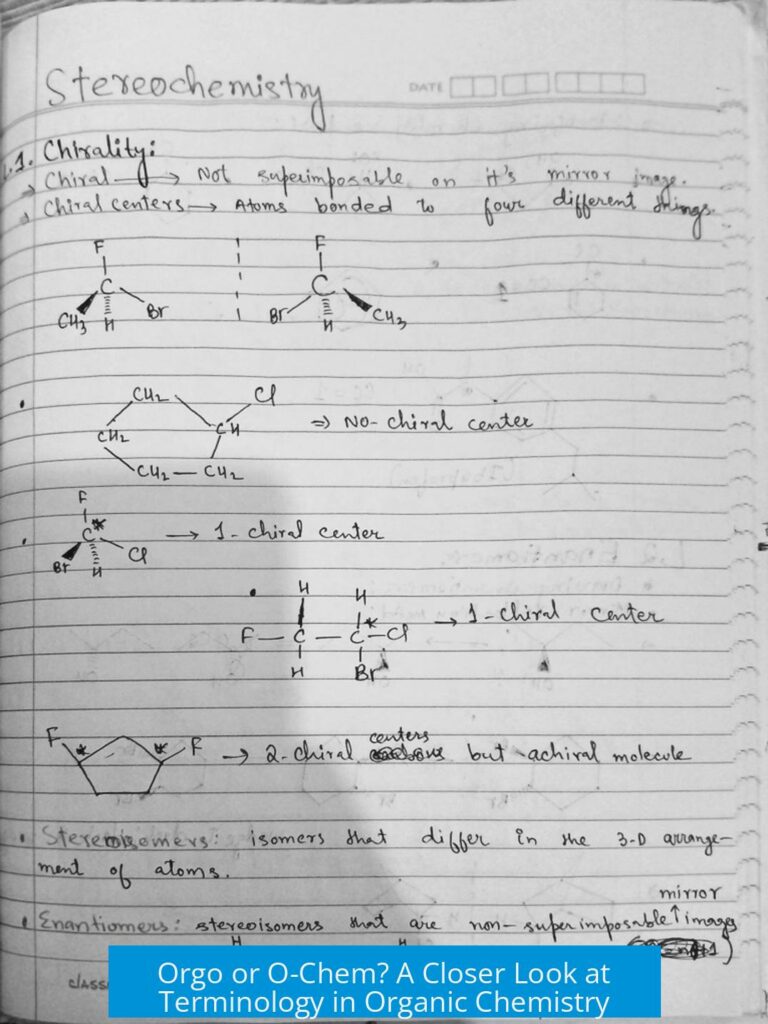 Stereochemistry
DATE
1.1. Chirality:
→ Chiral → Not superimposable on it's mirror image.
→ Chiral centers → Atoms bonded to four different things.
F F
C C
CH3 H Br Br H CH3
• CH2 Cl
CH2 CH ⇒ NO-chiral center
CH2 — CH2
F
• C* → 1-chiral center
Br H Cl
• H H
F — C — C* — Cl → 1-chiral center
H Br
F * * F → 2-chiral centers but achiral molecule
• Stereoisomers: isomers that differ in the 3-D arrange-
ment of atoms.
• Enantiomers: stereoisomers that are non-superimposable ↑ images
mirror
H H
Orgo or O-Chem? A Closer Look at
Terminology in Organic Chemistry